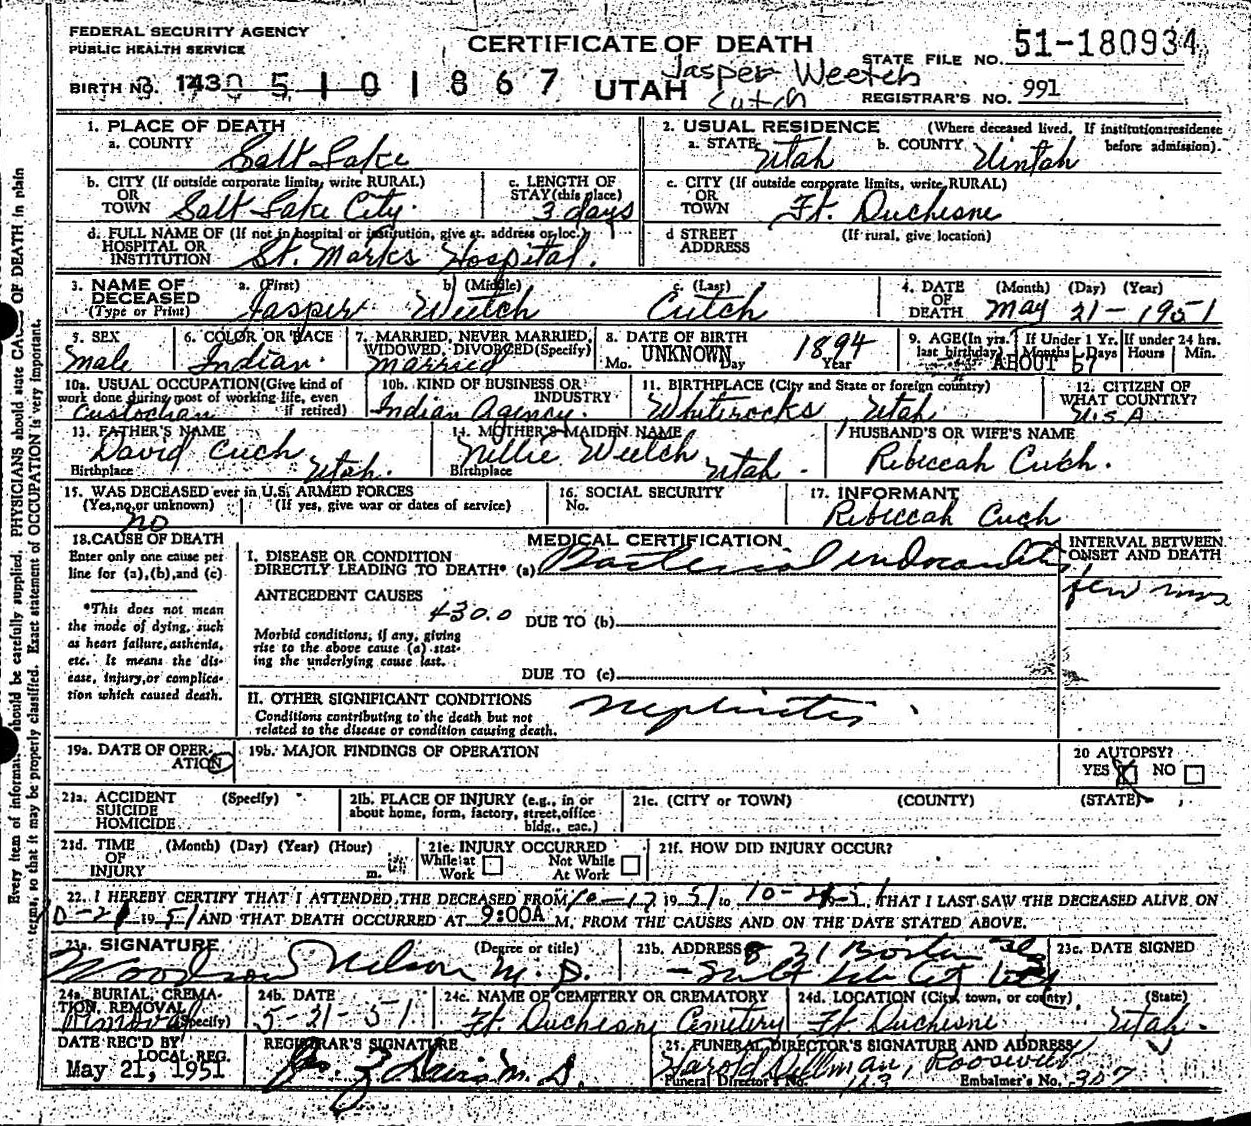 FEDERAL SECURITY AGENCY
PUBLIC HEALTH SERVICE
CERTIFICATE OF DEATH
STATE FILE NO. 51-180934
BIRTH NO. 1430 5101867
UTAH
Jasper Weetch
Cutch
REGISTRAR'S NO. 991
1. PLACE OF DEATH
a. COUNTY Salt Lake
2. USUAL RESIDENCE (Where deceased lived. If institution: residence before admission).
a. STATE Utah b. COUNTY Uintah
b. CITY (If outside corporate limits, write RURAL) OR TOWN Salt Lake City.
c. LENGTH OF STAY (this place) 3 days
c. CITY (If outside corporate limits, write RURAL) OR TOWN Ft. Duchesne
d. FULL NAME OF (If not in hospital or institution, give st. address or loc.) HOSPITAL OR INSTITUTION St. Marks Hospital.
d STREET ADDRESS (If rural, give location)
3. NAME OF DECEASED (Type or Print)
a. (First) Jasper b. (Middle) Weetch c. (Last) Cutch
4. DATE OF DEATH (Month) (Day) (Year) May 21-1951
5. SEX Male
6. COLOR OR RACE Indian.
7. MARRIED, NEVER MARRIED, WIDOWED, DIVORCED (Specify) Married
8. DATE OF BIRTH Mo. UNKNOWN Day 1894 Year
9. AGE (In yrs. last birthday) ABOUT 57 If Under 1 Yr. Months Days If under 24 hrs. Hours Min.
10a. USUAL OCCUPATION (Give kind of work done during most of working life, even if retired) Custodian
10b. KIND OF BUSINESS OR INDUSTRY Indian Agency.
11. BIRTHPLACE (City and State or foreign country) Whiterocks, Utah.
12. CITIZEN OF WHAT COUNTRY? U.S.A.
13. FATHER'S NAME David Cuch
Birthplace Utah.
14. MOTHER'S MAIDEN NAME Nellie Weetch
Birthplace Utah.
HUSBAND'S OR WIFE'S NAME
Rebeccah Cuch.
15. WAS DECEASED ever in U.S. ARMED FORCES
(Yes, no, or unknown) (If yes, give war or dates of service)
no
16. SOCIAL SECURITY No.
17. INFORMANT
Rebeccah Cuch
18. CAUSE OF DEATH
Enter only one cause per line for (a), (b), and (c)
*This does not mean the mode of dying, such as heart failure, asthenia, etc. It means the disease, injury, or complication which caused death.
MEDICAL CERTIFICATION
INTERVAL BETWEEN ONSET AND DEATH
I. DISEASE OR CONDITION DIRECTLY LEADING TO DEATH* (a) Bacterial endocarditis
few mos
ANTECEDENT CAUSES
430.0 DUE TO (b)
Morbid conditions, if any, giving rise to the above cause (a) stating the underlying cause last.
DUE TO (c)
II. OTHER SIGNIFICANT CONDITIONS
Conditions contributing to the death but not related to the disease or condition causing death.
Nephritis
19a. DATE OF OPERATION
19b. MAJOR FINDINGS OF OPERATION
20 AUTOPSY?
YES X NO
21a. ACCIDENT SUICIDE HOMICIDE (Specify)
21b. PLACE OF INJURY (e.g., in or about home, form, factory, street, office bldg., eac.)
21c. (CITY or TOWN) (COUNTY) (STATE)
21d. TIME OF INJURY (Month) (Day) (Year) (Hour) m.
21e. INJURY OCCURRED While at Work Not While At Work
21f. HOW DID INJURY OCCUR?
22. I HEREBY CERTIFY THAT I ATTENDED THE DECEASED FROM 10-17 1951 to THAT I LAST SAW THE DECEASED ALIVE ON
1951 AND THAT DEATH OCCURRED AT 9:00A M, FROM THE CAUSES AND ON THE DATE STATED ABOVE.
23a. SIGNATURE (Degree or title)
Woodrow Nelson M.D.
23b. ADDRESS
Salt Lake City
23c. DATE SIGNED
24a. BURIAL, CREMATION, REMOVAL (Specify) Removal
24b. DATE 5-21-51
24c. NAME OF CEMETERY OR CREMATORY Ft. Duchesne Cemetery
24d. LOCATION (City, town, or county) (State) Ft Duchesne Utah.
DATE REC'D BY LOCAL REG.
May 21, 1951
REGISTRAR'S SIGNATURE
M.D.
25. FUNERAL DIRECTOR'S SIGNATURE AND ADDRESS
Harold Dillman, Roosevelt
Funeral Director's No. 113 Embalmer's No. 307
Every item of information should be carefully supplied. PHYSICIANS should state CAUSE OF DEATH in plain
terms, so that it may be properly classified. Exact statement of OCCUPATION is very important.